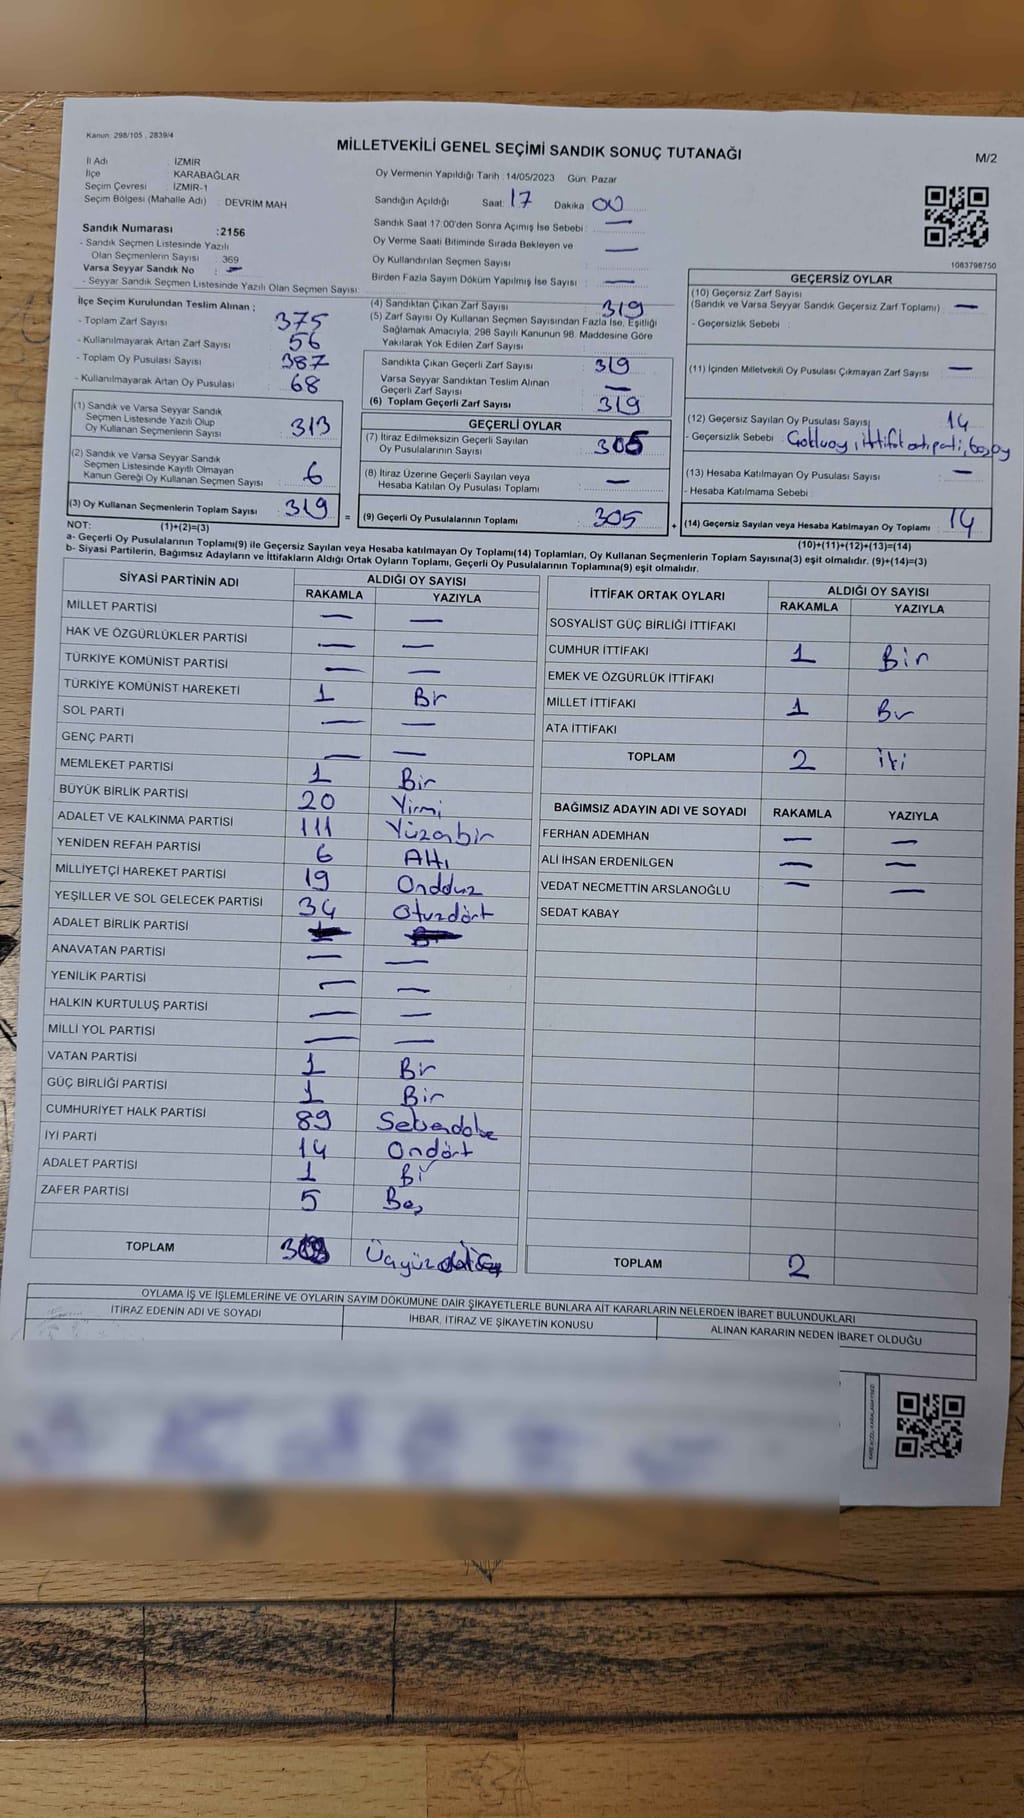 Kanun: 298/105 , 2839/4
MİLLETVEKİLİ GENEL SEÇİMİ SANDIK SONUÇ TUTANAĞI
M/2
İl Adı : İZMİR
İlçe : KARABAĞLAR
Seçim Çevresi : İZMİR-1
Seçim Bölgesi (Mahalle Adı) : DEVRİM MAH
Sandık Numarası :2156
- Sandık Seçmen Listesinde Yazılı
Olan Seçmenlerin Sayısı : 369
Varsa Seyyar Sandık No : —
- Seyyar Sandık Seçmen Listesinde Yazılı Olan Seçmen Sayısı:
Oy Vermenin Yapıldığı Tarih :14/05/2023 Gün: Pazar
Sandığın Açıldığı Saat: 17 Dakika 00
Sandık Saat 17:00'den Sonra Açımış İse Sebebi : —
Oy Verme Saati Bitiminde Sırada Bekleyen ve —
Oy Kullandırılan Seçmen Sayısı :
Birden Fazla Sayım Döküm Yapılmış İse Sayısı : —
1063798750
İlçe Seçim Kurulundan Teslim Alınan ;
- Toplam Zarf Sayısı : 375
- Kullanılmayarak Artan Zarf Sayısı : 56
- Toplam Oy Pusulası Sayısı : 387
- Kullanılmayarak Artan Oy Pusulası : 68
(1) Sandık ve Varsa Seyyar Sandık
Seçmen Listesinde Yazılı Olup
Oy Kullanan Seçmenlerin Sayısı : 313
(2) Sandık ve Varsa Seyyar Sandık
Seçmen Listesinde Kayıtlı Olmayan
Kanun Gereği Oy Kullanan Seçmen Sayısı : 6
(3) Oy Kullanan Seçmenlerin Toplam Sayısı : 319
(4) Sandıktan Çıkan Zarf Sayısı : 319
(5) Zarf Sayısı Oy Kullanan Seçmen Sayısından Fazla İse, Eşitliği
Sağlamak Amacıyla, 298 Sayılı Kanunun 98. Maddesine Göre
Yakılarak Yok Edilen Zarf Sayısı :
Sandıkta Çıkan Geçerli Zarf Sayısı : 319
Varsa Seyyar Sandıktan Teslim Alınan
Geçerli Zarf Sayısı : —
(6) Toplam Geçerli Zarf Sayısı : 319
GEÇERLİ OYLAR
(7) İtiraz Edilmeksizin Geçerli Sayılan
Oy Pusulalarının Sayısı : 305
(8) İtiraz Üzerine Geçerli Sayılan veya
Hesaba Katılan Oy Pusulası Toplamı : —
= (9) Geçerli Oy Pusulalarının Toplamı : 305
GEÇERSİZ OYLAR
(10) Geçersiz Zarf Sayısı
(Sandık ve Varsa Seyyar Sandık Geçersiz Zarf Toplamı) : —
- Geçersizlik Sebebi :
(11) İçinden Milletvekili Oy Pusulası Çıkmayan Zarf Sayısı : —
(12) Geçersiz Sayılan Oy Pusulası Sayısı 14
- Geçersizlik Sebebi :
(13) Hesaba Katılmayan Oy Pusulası Sayısı : —
- Hesaba Katılmama Sebebi
+ (14) Geçersiz Sayılan veya Hesaba Katılmayan Oy Toplamı : 14
NOT: (1)+(2)=(3)
(10)+(11)+(12)+(13)=(14)
a- Geçerli Oy Pusulalarının Toplamı(9) ile Geçersiz Sayılan veya Hesaba katılmayan Oy Toplamı(14) Toplamları, Oy Kullanan Seçmenlerin Toplam Sayısına(3) eşit olmalıdır. (9)+(14)=(3)
b- Siyasi Partilerin, Bağımsız Adayların ve İttifakların Aldığı Ortak Oyların Toplamı, Geçerli Oy Pusulalarının Toplamına(9) eşit olmalıdır.
SİYASİ PARTİNİN ADI ALDIĞI OY SAYISI
RAKAMLA YAZIYLA
MİLLET PARTİSİ — —
HAK VE ÖZGÜRLÜKLER PARTİSİ — —
TÜRKİYE KOMÜNİST PARTİSİ — —
TÜRKİYE KOMÜNİST HAREKETİ 1 Bir
SOL PARTİ — —
GENÇ PARTİ — —
MEMLEKET PARTİSİ 1 Bir
BÜYÜK BİRLİK PARTİSİ 20 Yirmi
ADALET VE KALKINMA PARTİSİ 111 Yüzonbir
YENİDEN REFAH PARTİSİ 6 Altı
MİLLİYETÇİ HAREKET PARTİSİ 19 Ondduz
YEŞİLLER VE SOL GELECEK PARTİSİ 34 Otuzdört
ADALET BİRLİK PARTİSİ
ANAVATAN PARTİSİ — —
YENİLİK PARTİSİ — —
HALKIN KURTULUŞ PARTİSİ — —
MİLLİ YOL PARTİSİ — —
VATAN PARTİSİ 1 Bir
GÜÇ BİRLİĞİ PARTİSİ 1 Bir
CUMHURİYET HALK PARTİSİ 89
İYİ PARTİ 14 Ondört
ADALET PARTİSİ 1 Bi
ZAFER PARTİSİ 5 Beş
TOPLAM
İTTİFAK ORTAK OYLARI ALDIĞI OY SAYISI
RAKAMLA YAZIYLA
SOSYALİST GÜÇ BİRLİĞİ İTTİFAKI
CUMHUR İTTİFAKI 1 Bir
EMEK VE ÖZGÜRLÜK İTTİFAKI
MİLLET İTTİFAKI 1 Bir
ATA İTTİFAKI
TOPLAM 2 iki
BAĞIMSIZ ADAYIN ADI VE SOYADI RAKAMLA YAZIYLA
FERHAN ADEMHAN — —
ALİ İHSAN ERDENİLGEN — —
VEDAT NECMETTİN ARSLANOĞLU — —
SEDAT KABAY
TOPLAM 2
OYLAMA İŞ VE İŞLEMLERİNE VE OYLARIN SAYIM DÖKÜMÜNE DAİR ŞİKAYETLERLE BUNLARA AİT KARARLARIN NELERDEN İBARET BULUNDUKLARI
İTİRAZ EDENİN ADI VE SOYADI İHBAR, İTİRAZ VE ŞİKAYETİN KONUSU ALINAN KARARIN NEDEN İBARET OLDUĞU